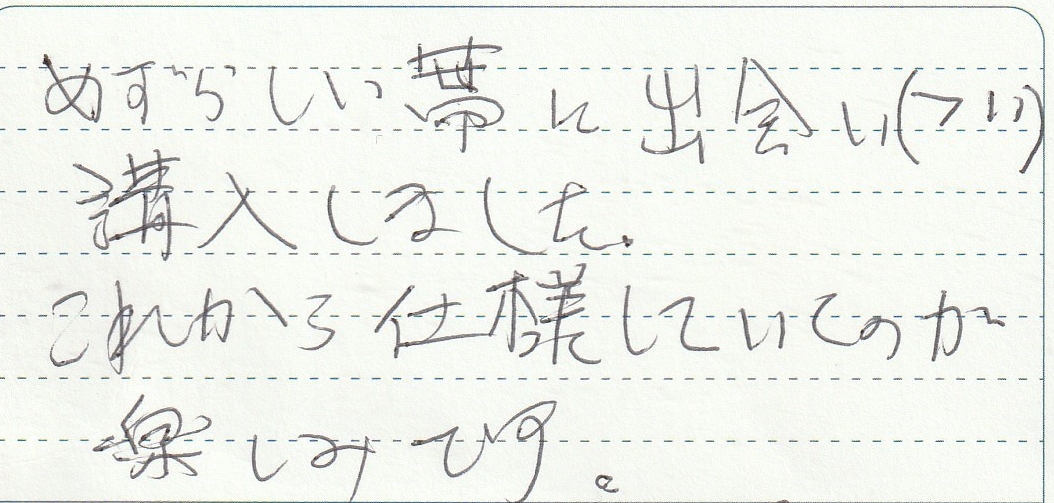 めずらしい帯に出会い(つい)
講入しました。
これから仕様していくのが
楽しみです。